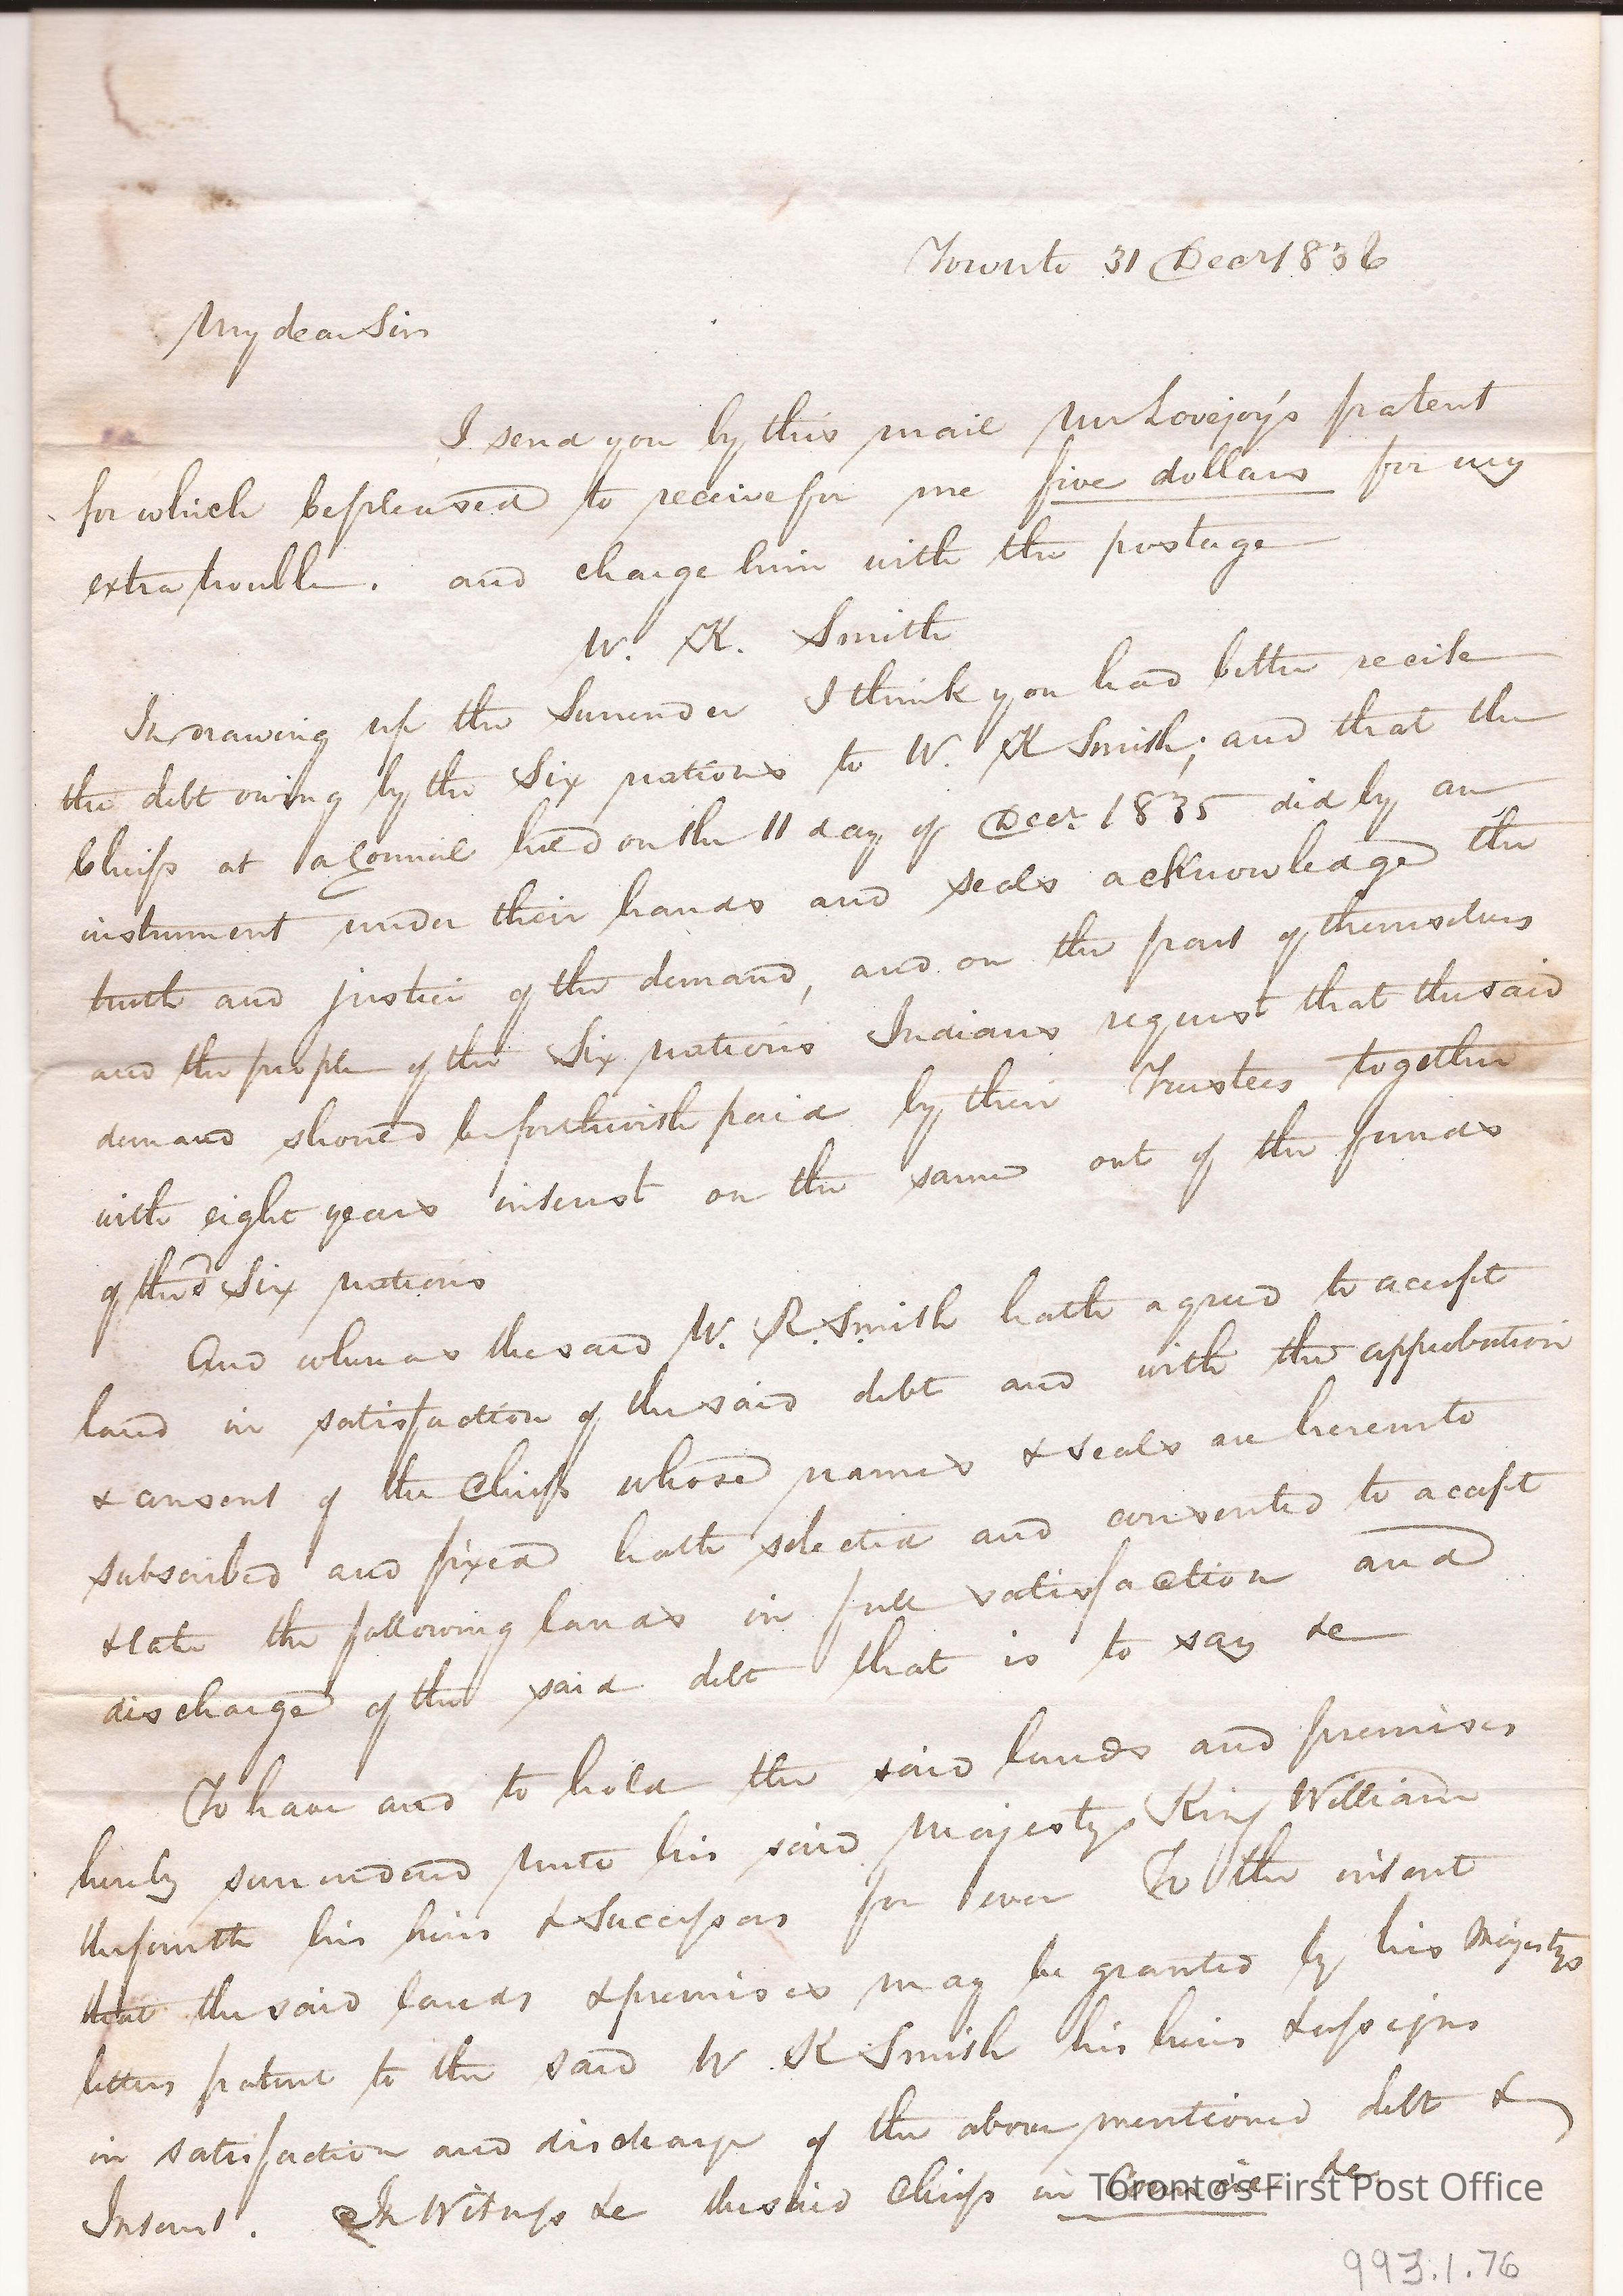 Toronto 31 Decr 1836
My dear Sir
I send you by this mail Mr Lovejoy's patent
for which be pleased to receive for me five dollars for my
extra trouble. and charge him with the postage
W. K. Smith
In drawing up the Surrender I think you had better recite
the debt owing by the Six nations to W. K Smith; and that the
Chiefs at a Council held on the 11 day of Decr. 1835 did by an
instrument under their hands and seals acknowledge the
truth and justice of the demand, and on the part of themselves
and the people of the Six nations Indians request that the said
demand should be forthwith paid by their Trustees together
with eight years interest on the same out of the funds
of the sd Six nations
And whereas the said W. K. Smith hath agreed to accept
land in satisfaction of the said debt and with the approbation
& consent of the Chiefs whose names & seals are hereunto
subscribed and fixed hath selected and consented to accept
& take the following lands in full satisfaction and
discharge of the said debt that is to say &c
To have and to hold the said lands and premises
hereby surrendered unto his said Majesty King William
the fourth his heirs & Successors for ever To the intent
that the said lands & premises may be granted by his Majestys
letters patent to the said W. K Smith his heirs & assigns
in satisfaction and discharge of the above mentioned debt &
Interest. In Witness &c the said Chiefs in Council &c
Toronto's First Post Office
993.1.76